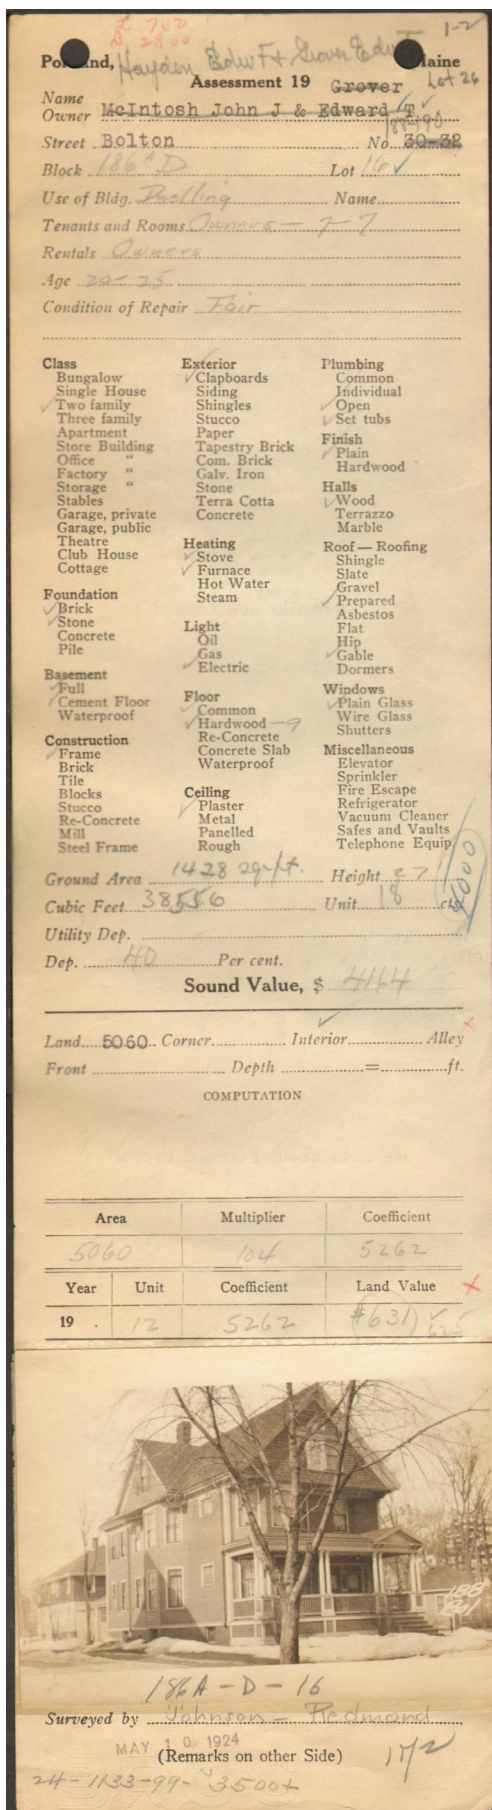 L 750
B 2800
1-2
Portland, Hayden Edw F & Grover Edw T Maine
Assessment 19 Grover Lot 26
Name
Owner McIntosh John J & Edward T
188-190
Street Bolton No. 30-32
Block 186A D Lot 16
Use of Bldg. Dwelling Name
Tenants and Rooms Owners - 7-7
Rentals Owners
Age 20-25
Condition of Repair Fair
Class
Bungalow
Single House
Two family
Three family
Apartment
Store Building
Office "
Factory "
Storage "
Stables
Garage, private
Garage, public
Theatre
Club House
Cottage
Foundation
Brick
Stone
Concrete
Pile
Basement
Full
Cement Floor
Waterproof
Construction
Frame
Brick
Tile
Blocks
Stucco
Re-Concrete
Mill
Steel Frame
Exterior
Clapboards
Siding
Shingles
Stucco
Paper
Tapestry Brick
Com. Brick
Galv. Iron
Stone
Terra Cotta
Concrete
Heating
Stove
Furnace
Hot Water
Steam
Light
Oil
Gas
Electric
Floor
Common
Hardwood - 9
Re-Concrete
Concrete Slab
Waterproof
Ceiling
Plaster
Metal
Panelled
Rough
Plumbing
Common
Individual
Open
Set tubs
Finish
Plain
Hardwood
Halls
Wood
Terrazzo
Marble
Roof — Roofing
Shingle
Slate
Gravel
Prepared
Asbestos
Flat
Hip
Gable
Dormers
Windows
Plain Glass
Wire Glass
Shutters
Miscellaneous
Elevator
Sprinkler
Fire Escape
Refrigerator
Vacuum Cleaner
Safes and Vaults
Telephone Equip.
Ground Area 1428 sq. ft. Height 27
Cubic Feet 38556 Unit 18 cts.
4000
Utility Dep.
Dep. 40 Per cent.
Sound Value, $ 4164
Land 5060 Corner Interior Alley
Front Depth = ft.
COMPUTATION
Area Multiplier Coefficient
5060 104 5262
Year Unit Coefficient Land Value
19 . 12 5262 $631 625
188
186A - D - 16
Surveyed by Johnson - Redmond
MAY 10 1924
(Remarks on other Side)
24-1133-99- 3500+